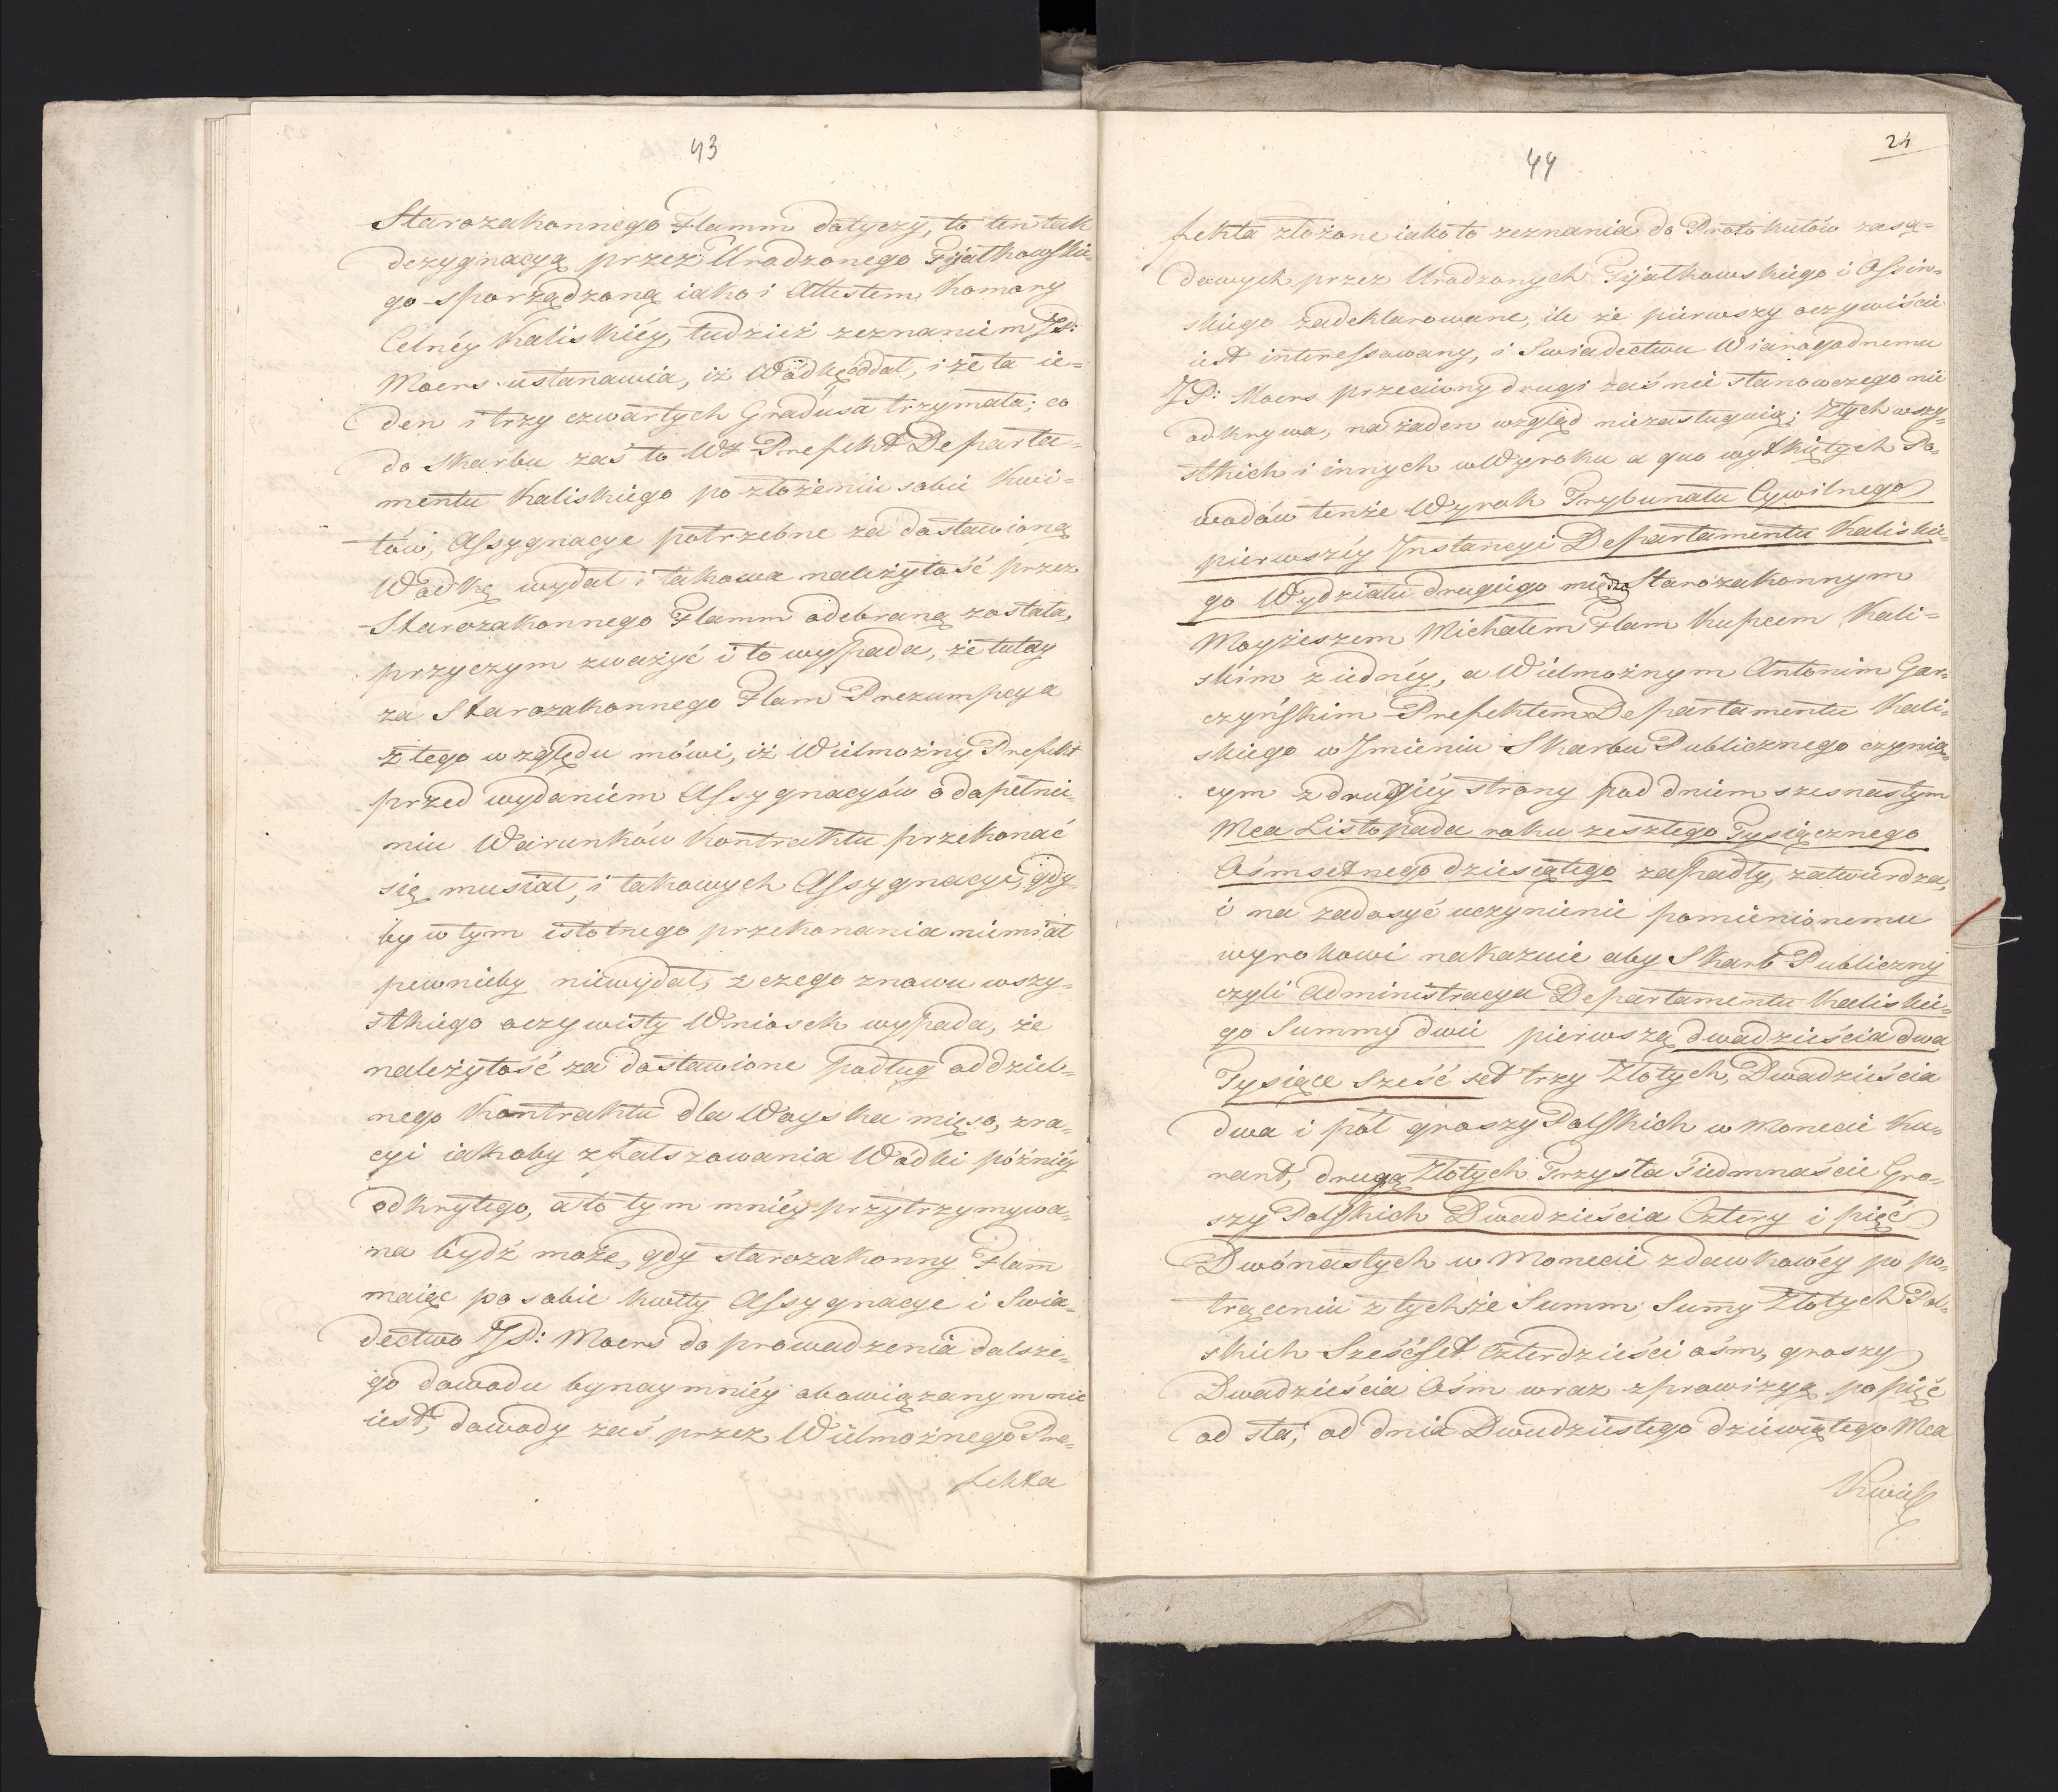 43
Starozakonnego Flamm dotyczy, to ten tak
dezygnacyą przez Urodzonego Fijałkowskie-
go sporządzoną iako i Attestem Komory
Celnéy Kaliskiéy, tudzież zeznaniem JP:
Moers ustanawia, iż Wódkę oddał, i że ta ie-
den i trzy czwartych Gradusa trzymała; co
do Skarbu zaś to W Prefekt Departa-
mentu Kaliskiego po złożeniu sobie Kwi-
tów, Assygnacye potrzebne za dostawioną
Wódkę wydał i takowa należytość przez
Starozakonnego Flamm odebraną została,
przyczym zważyć i to wypada, że tutay
za Starozakonnego Flam Prezumpcya
z tego względu mówi, iż Wielmożny Prefekt
przed wydaniem Assygnacyów o dopełnie-
niu Warunków Kontraktu przekonać
się musiał, i takowych Assygnacyi, gdy-
by w tym istotnego przekonania niemiał
pewnieby niewydał, z czego znowu wszy-
stkiego oczywisty Wniosek wypada, że
należytość za dostawione podług oddziel-
nego Kontraktu dla Woyska mięso, zra-
cyi iakoby zfałszowania Wódki późniéy
odkrytego, a to tym mniéy przytrzymywa-
na bydź może, gdy starozakonny Flam
maiąc po sobie kwitty Assygnacye i Swia-
dectwo JP: Moers do prowadzenia dalsze-
go dowodu bynaymniéy obowiązanym nie
iest, dowody zaś przez Wielmożnego Pre-
fekta
24
44
fekta złożone iako to zeznania do Protokułów zasą-
dowych przez Urodzonych Fijałkowskiego i Ossin-
skiego zadeklarowane, ile że pierwszy oczywiście
iest interessowany, i Swiadectwu Wiarogodnemu
JP: Moers przeciwny drugi zaś nic stanowczego nie
odkrywa, na żaden wzgląd niezasługuią; Ztych wszy-
stkich i innych w Wyroku a quo wytkniętych Po-
wodów tenże Wyrok Trybunału Cywilnego
pierwszéy Instancyi Departamentu Kaliskie-
go Wydziału drugiego między Starozakonnym
Moyżeszem Michałem Flam Kupcem Kali-
skim z iednéy, a Wielmożnym Antonim Gar-
czyńskim Prefektem Departamentu Kali-
skiego w Imieniu Skarbu Publicznego czynią-
cym z drugiéy strony pod dniem szesnastym
Mca Listopada roku zeszłego Tysiącznego
Ośmsetnego dziesiątego zapadły, zatwierdza,
i na zadosyć uczynienie pomienionemu
wyrokowi nakazuie aby Skarb Publiczny
czyli Administracya Departamentu Kaliskie-
go Summy dwie pierwszą dwadzieścia dwa
Tysiące Sześć set trzy Złotych, Dwadzieścia
dwa i pół groszy Polskich w Monecie Ku-
rant, drugą Złotych Trzysta Siedmnaście Gro-
szy Polskich Dwadzieścia Cztery i pięć
Dwónastych w Monecie zdawkowéy po po-
trąceniu z tychże Summ, Sumy Złotych Pol-
skich Sześćset Czterdzieści ośm, groszy
Dwadzieścia Ośm wraz z prowizyą po pięć
od sta, od dnia Dwudziestego dziewiątego Mca